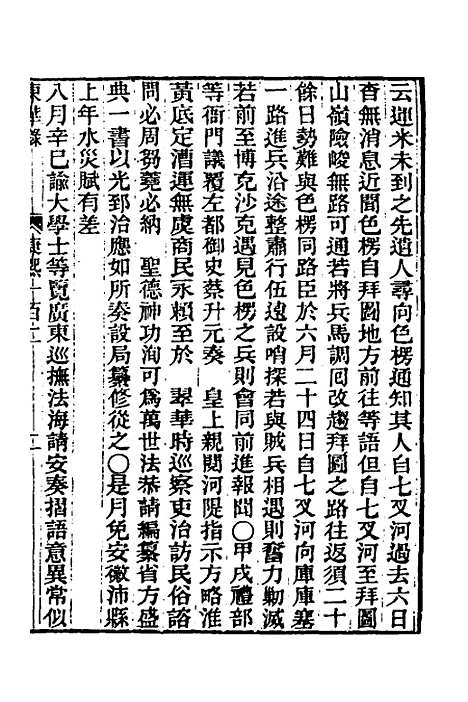 云運米未到之先遣人尋向色楞通知其人自七叉河過去六日
杳無消息近聞色楞自拜圖地方前往等語但自七叉河至拜圖
山嶺險峻無路可通若將兵馬調囘改趨拜圖之路往返須二十
餘日勢難與色楞同路臣於六月二十四日自七叉河向庫庫塞
一路進兵沿途整肅行伍遠設哨探若與賊兵相遇則奮力勦滅
若前至博克沙克遇見色楞之兵則會同前進報聞〇甲戌禮部
等衙門議覆左都御史蔡升元奏　皇上親閱河隄指示方略淮
黃底定漕運無虞商民永賴至於　翠華時巡察吏治訪民俗諮
問必周芻蕘必納　聖德神功洵可爲萬世法恭請編纂省方盛
典一書以光郅治應如所奏設局纂修從之〇是月免安徽沛縣
上年水災賦有差
八月辛巳諭大學士等覽廣東巡撫法海請安奏摺語意異常似
東華錄　康熙一百二　二